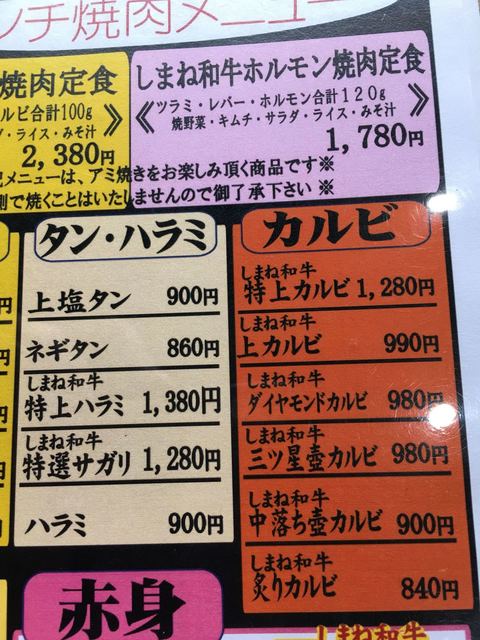 ンチ焼肉メニュー
焼肉定食
ルビ合計100g
・ライス・みそ汁
2,380円
しまね和牛ホルモン焼肉定食
ツラミ・レバー・ホルモン合計120g
焼野菜・キムチ・サラダ・ライス・みそ汁
1,780円
メニューは、アミ焼きをお楽しみ頂く商品です※
側で焼くことはいたしませんので御了承下さい※
タン・ハラミ
上塩タン 900円
ネギタン 860円
しまね和牛
特上ハラミ 1,380円
しまね和牛
特選サガリ 1,280円
ハラミ 900円
カルビ
しまね和牛
特上カルビ 1,280円
しまね和牛
上カルビ 990円
しまね和牛
ダイヤモンドカルビ 980円
しまね和牛
三ツ星壺カルビ 980円
しまね和牛
中落ち壺カルビ 900円
しまね和牛
炙りカルビ 840円
赤身
しまね和牛